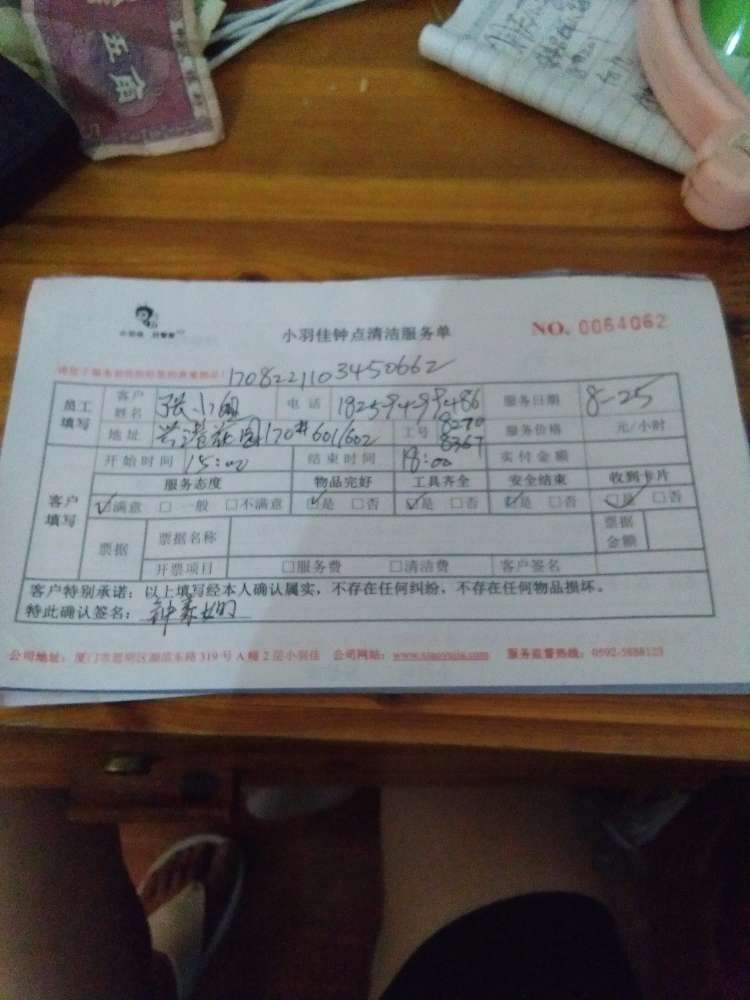 五角
小羽佳钟点清洁服务单
NO. 0064062
1708221103450662
员工填写 客户姓名 张小 电话 18259499486 服务日期 8-25
地址 170# 601/602 工号 8270 8367 服务价格 元/小时
客户填写 开始时间 15:00 结束时间 18:00 实付金额
服务态度 物品完好 工具齐全 安全结束 收到卡片
☑满意 □一般 □不满意 ☑是 □否 ☑是 □否 ☑是 □否 ☑是 □否
票据 票据名称 票据金额
开票项目 □服务费 □清洁费 客户签名
客户特别承诺：以上填写经本人确认属实，不存在任何纠纷，不存在任何物品损坏。
特此确认签名：
公司地址：厦门市思明区湖滨东路 319 号 A 幢 2 层小羽佳 公司网站：www.xiaoyujia.com 服务监督热线：0592-5688123